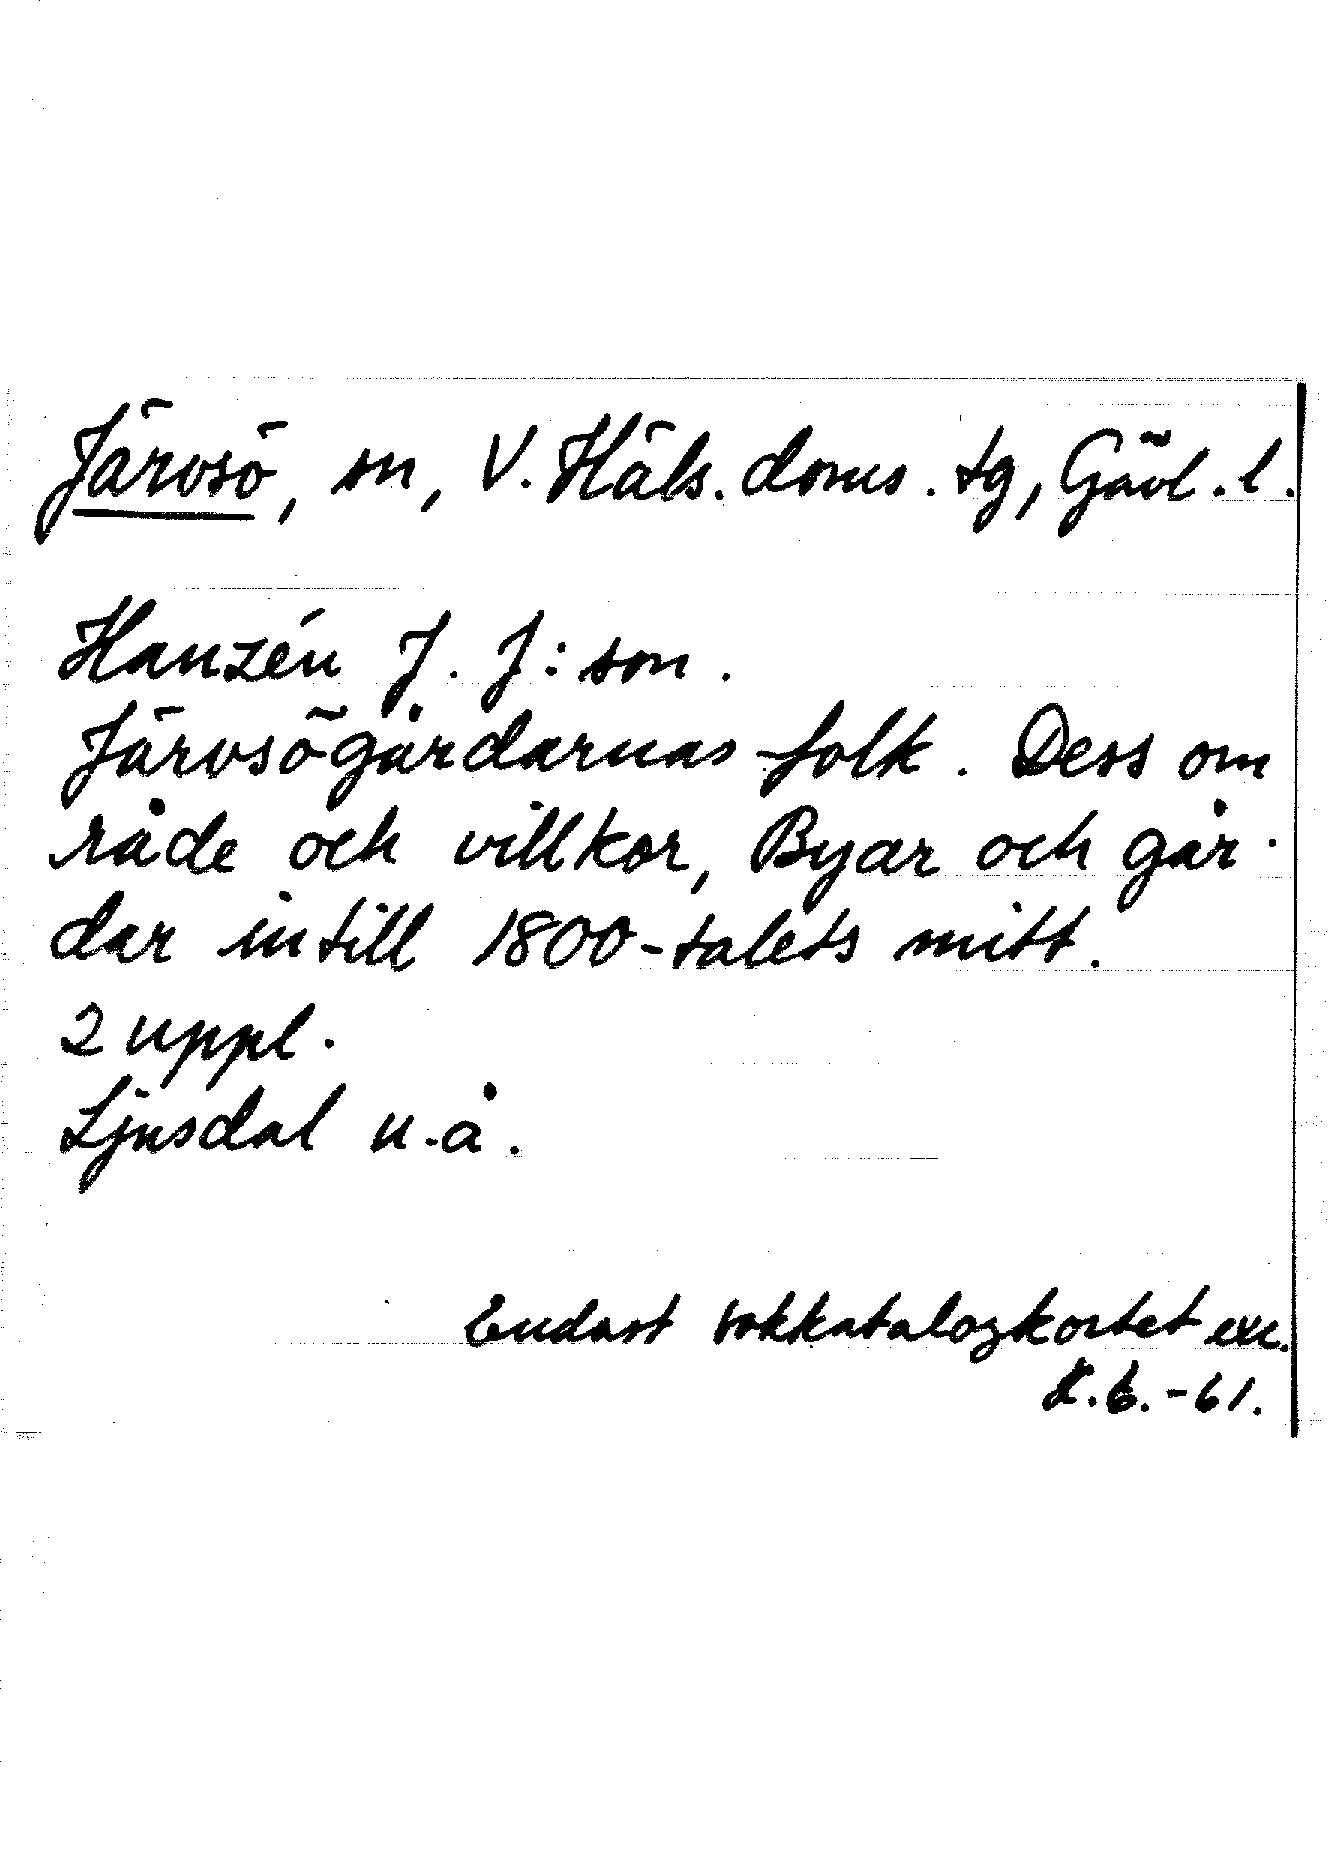 Järvsö, sn, V. Häls. doms. tg, Gävl. l.
Hanzén J. J:son.
Järvsögårdarnas folk. Dess om
råde och villkor, Byar och går-
dar intill 1800-talets mitt.
2 uppl.
Ljusdal u.å.
Endast sakkatalogkortet exc.
6.-61.